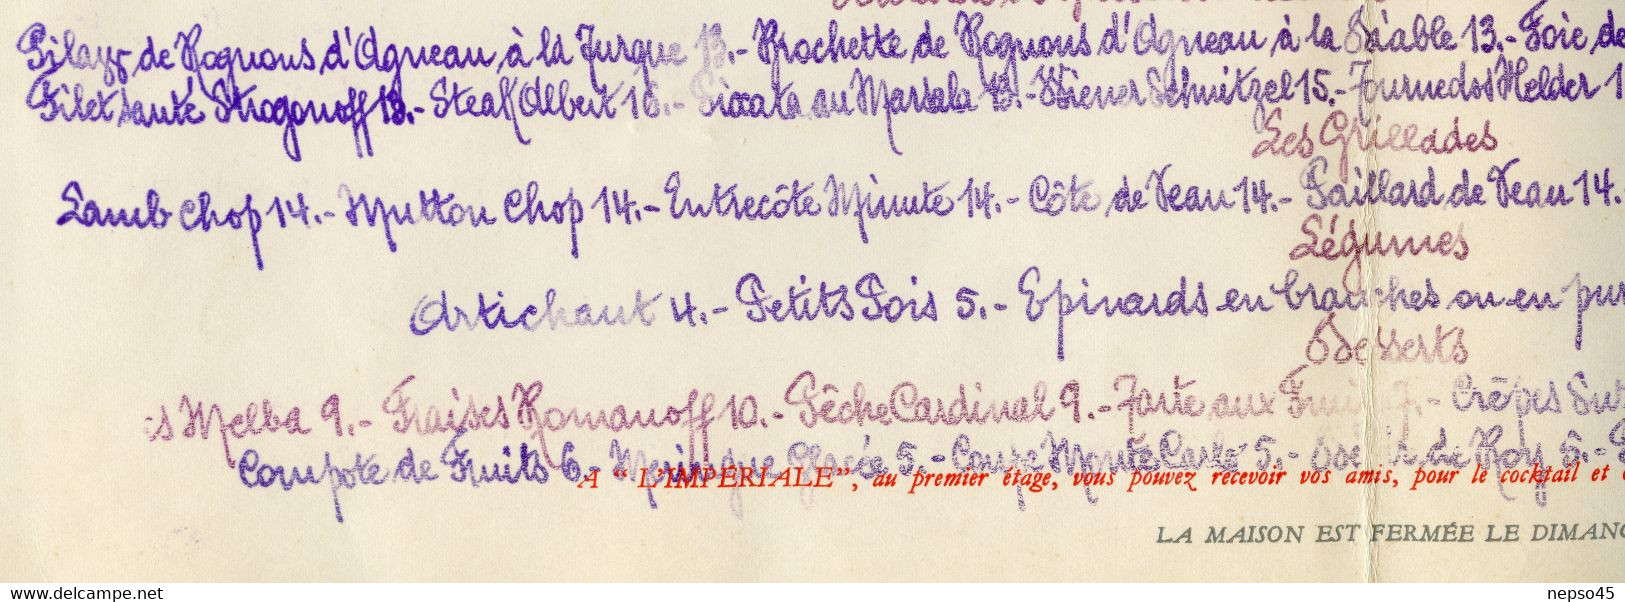 Pilaff de Rognons d'Agneau à la Turque 13.- Brochette de Rognons d'Agneau à la Diable 13.- Foie de
Filet sauté Strogonoff 13.- Steak Albert 16.- Piccata au Marsala 13.- Wiener Schnitzel 15.- Tournedos Helder 1
Les Grillades
Lamb Chop 14.- Mutton Chop 14.- Entrecôte Minute 14.- Côte de Veau 14.- Paillard de Veau 14.
Légumes
Artichaut 4.- Petits Pois 5.- Epinards en branches ou en pur
Desserts
s Melba 9.- Fraises Romanoff 10.- Pêche Cardinal 9.- Tarte aux Fruits 7.- Crêpes Suz
Compote de Fruits 6.- Meringue Glacée 5.- Coupe Monte Carlo 5.- de Roy 5.-
A "L'IMPÉRIALE", au premier étage, vous pouvez recevoir vos amis, pour le cocktail et
LA MAISON EST FERMÉE LE DIMANC
www.delcampe.net
nepso45